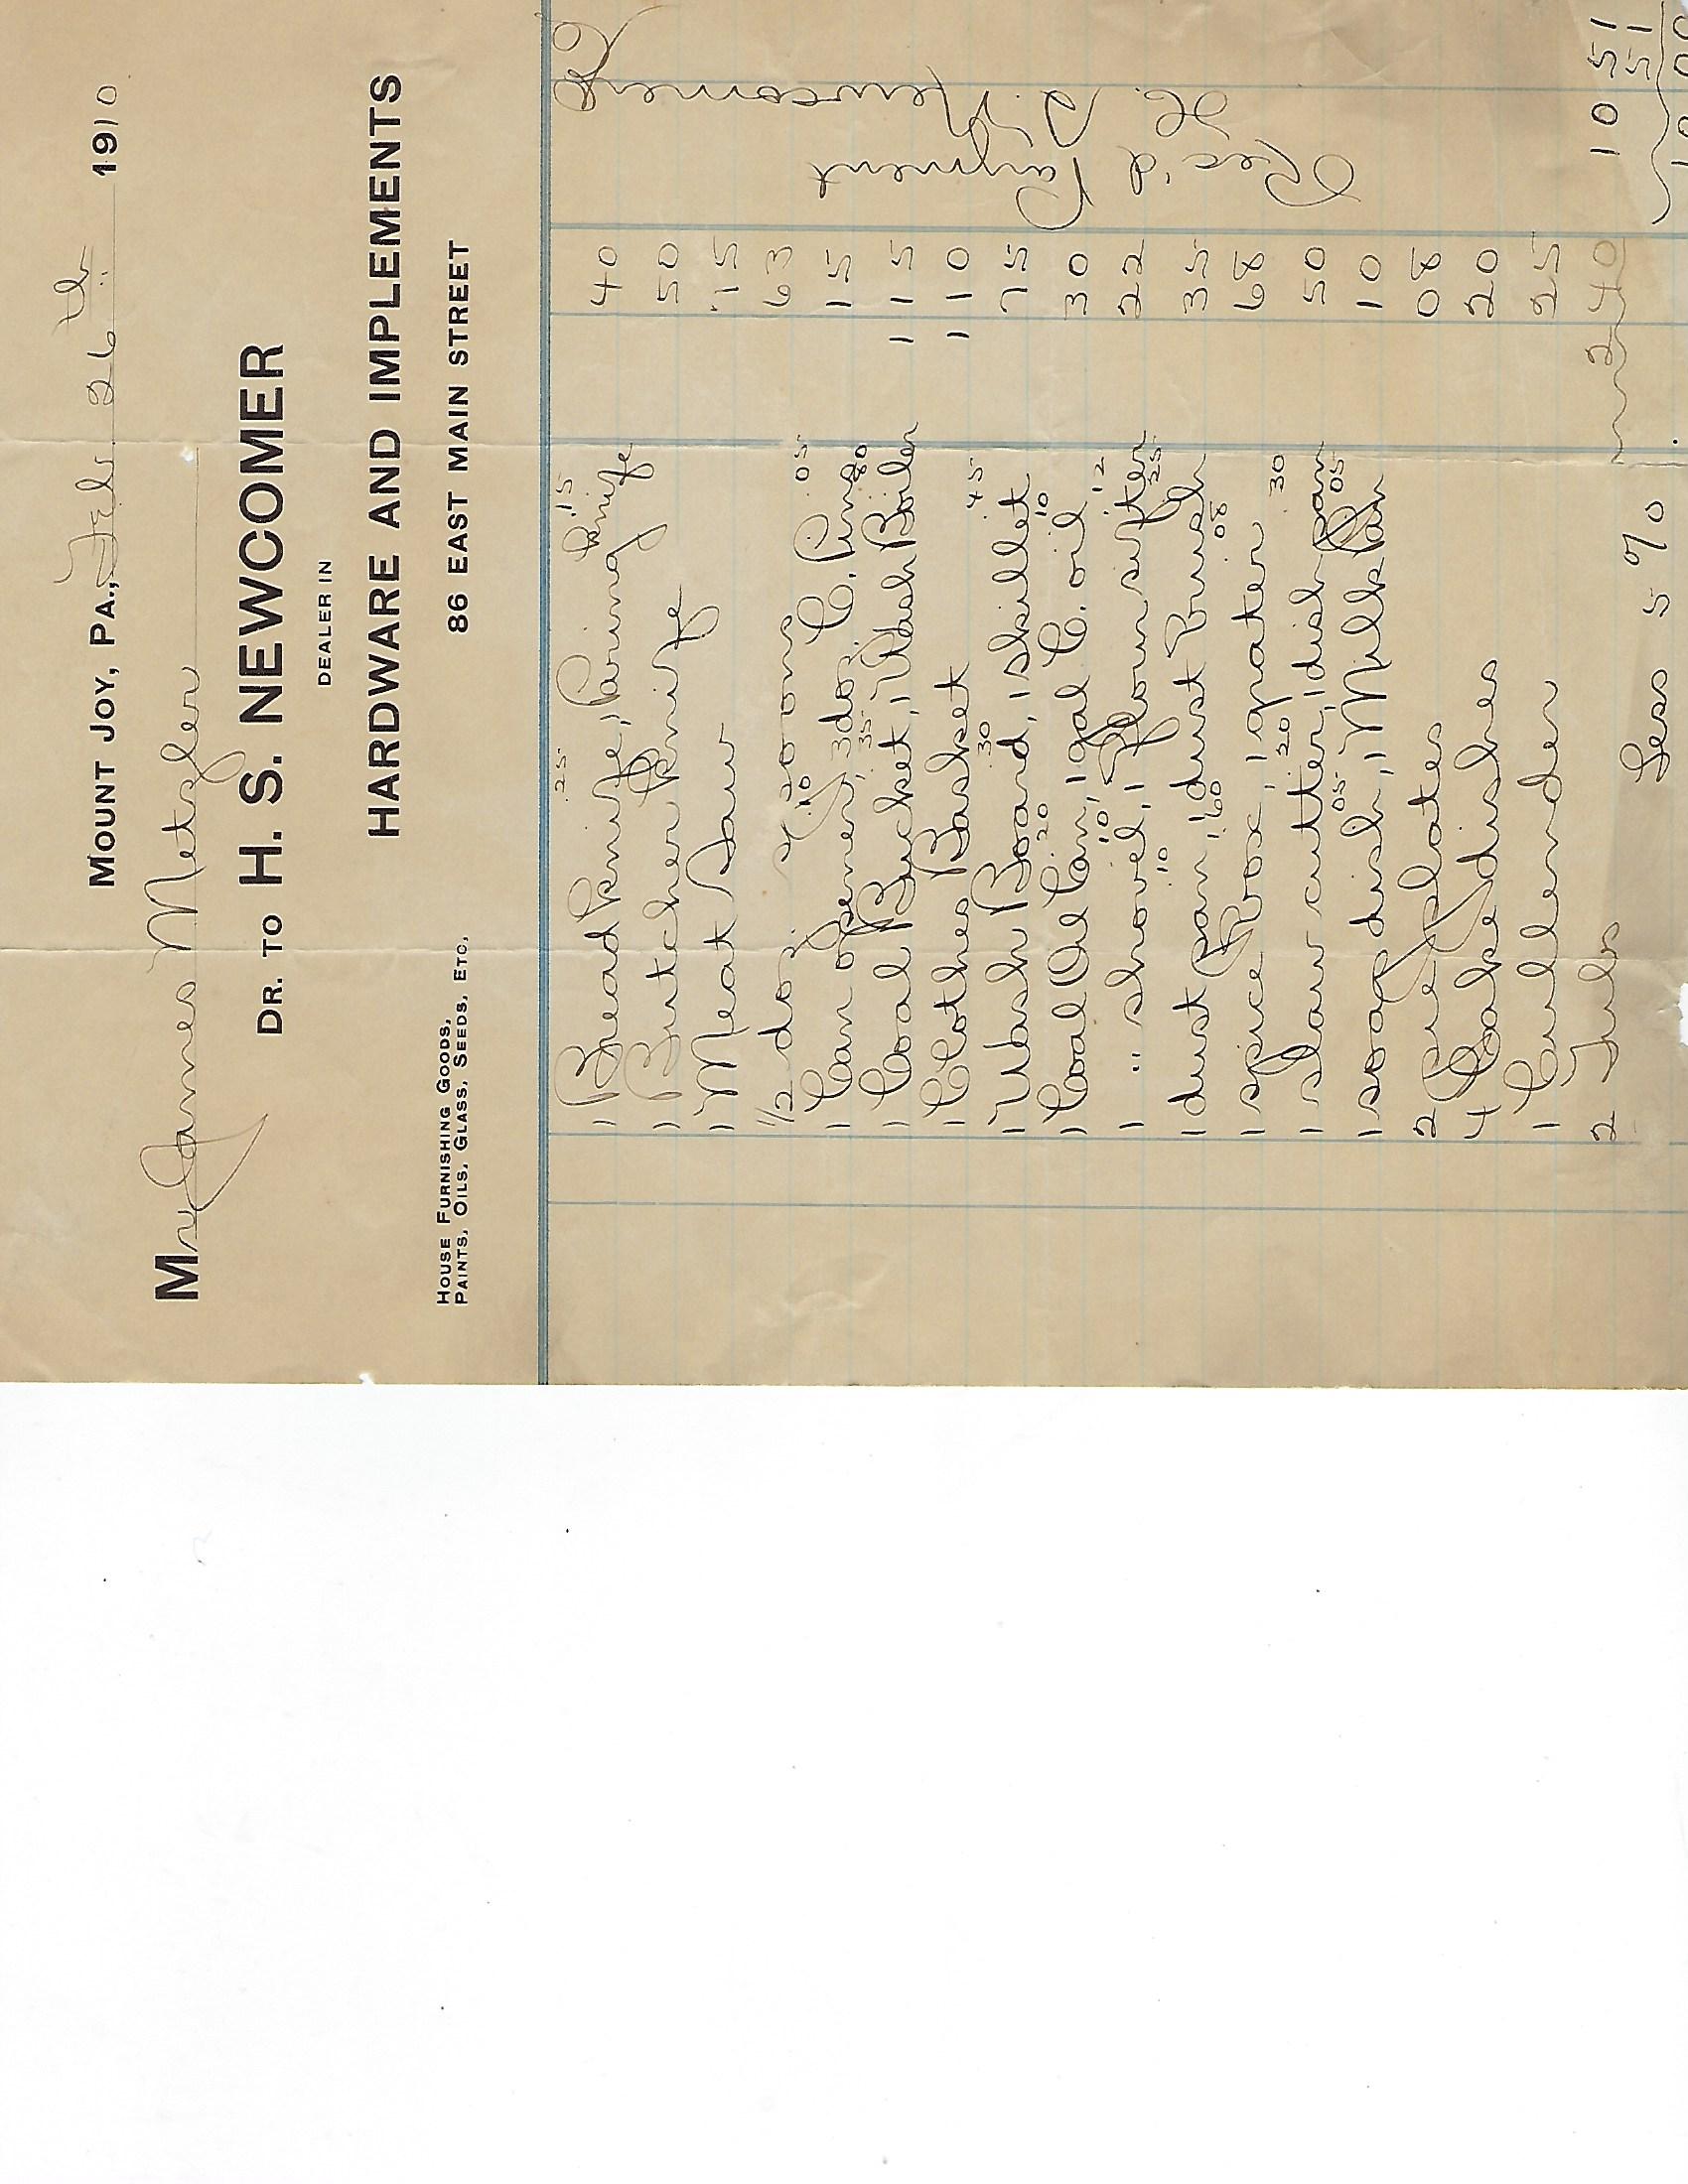 MOUNT JOY, PA., Feb. 26 th 1910
Mr James Metzler
DR. TO H. S. NEWCOMER
DEALER IN
HARDWARE AND IMPLEMENTS
HOUSE FURNISHING GOODS,
PAINTS, OILS, GLASS, SEEDS, ETC.
86 EAST MAIN STREET
.25 .15
1 Bread Knife, 1 Paring Knife 40
1 Butcher Knife 50
1 Meat Saw 75
1/2 doz. spoons 63
.10 .05
1 Can opener, 3 doz. C. Pins 15
.35 .80
1 Coal Bucket, 1 Wash Boiler 1 15
1 Clothes Basket 1 10
.30 .45
1 Wash Board, 1 skillet 75
.20 10
1 Coal Oil Can, 1 gal C. oil 30
10 .12
1 " shovel, 1 Flour sifter 22
.10 .25
1 dust pan, 1 dust Brush 35
.60 .08
1 spice Box, 1 grater 68
.20 .30
1 slaw cutter, 1 dish pan 50
.05 .05
1 soap dish, 1 Milk Pan 10
2 Pie Plates 08
4 Cake dishes 20
1 Cullender 25
2 Tubs 2 40
10 51
Less 5 % 51
10 00
Rec'd Payment
H. S. Newcomer